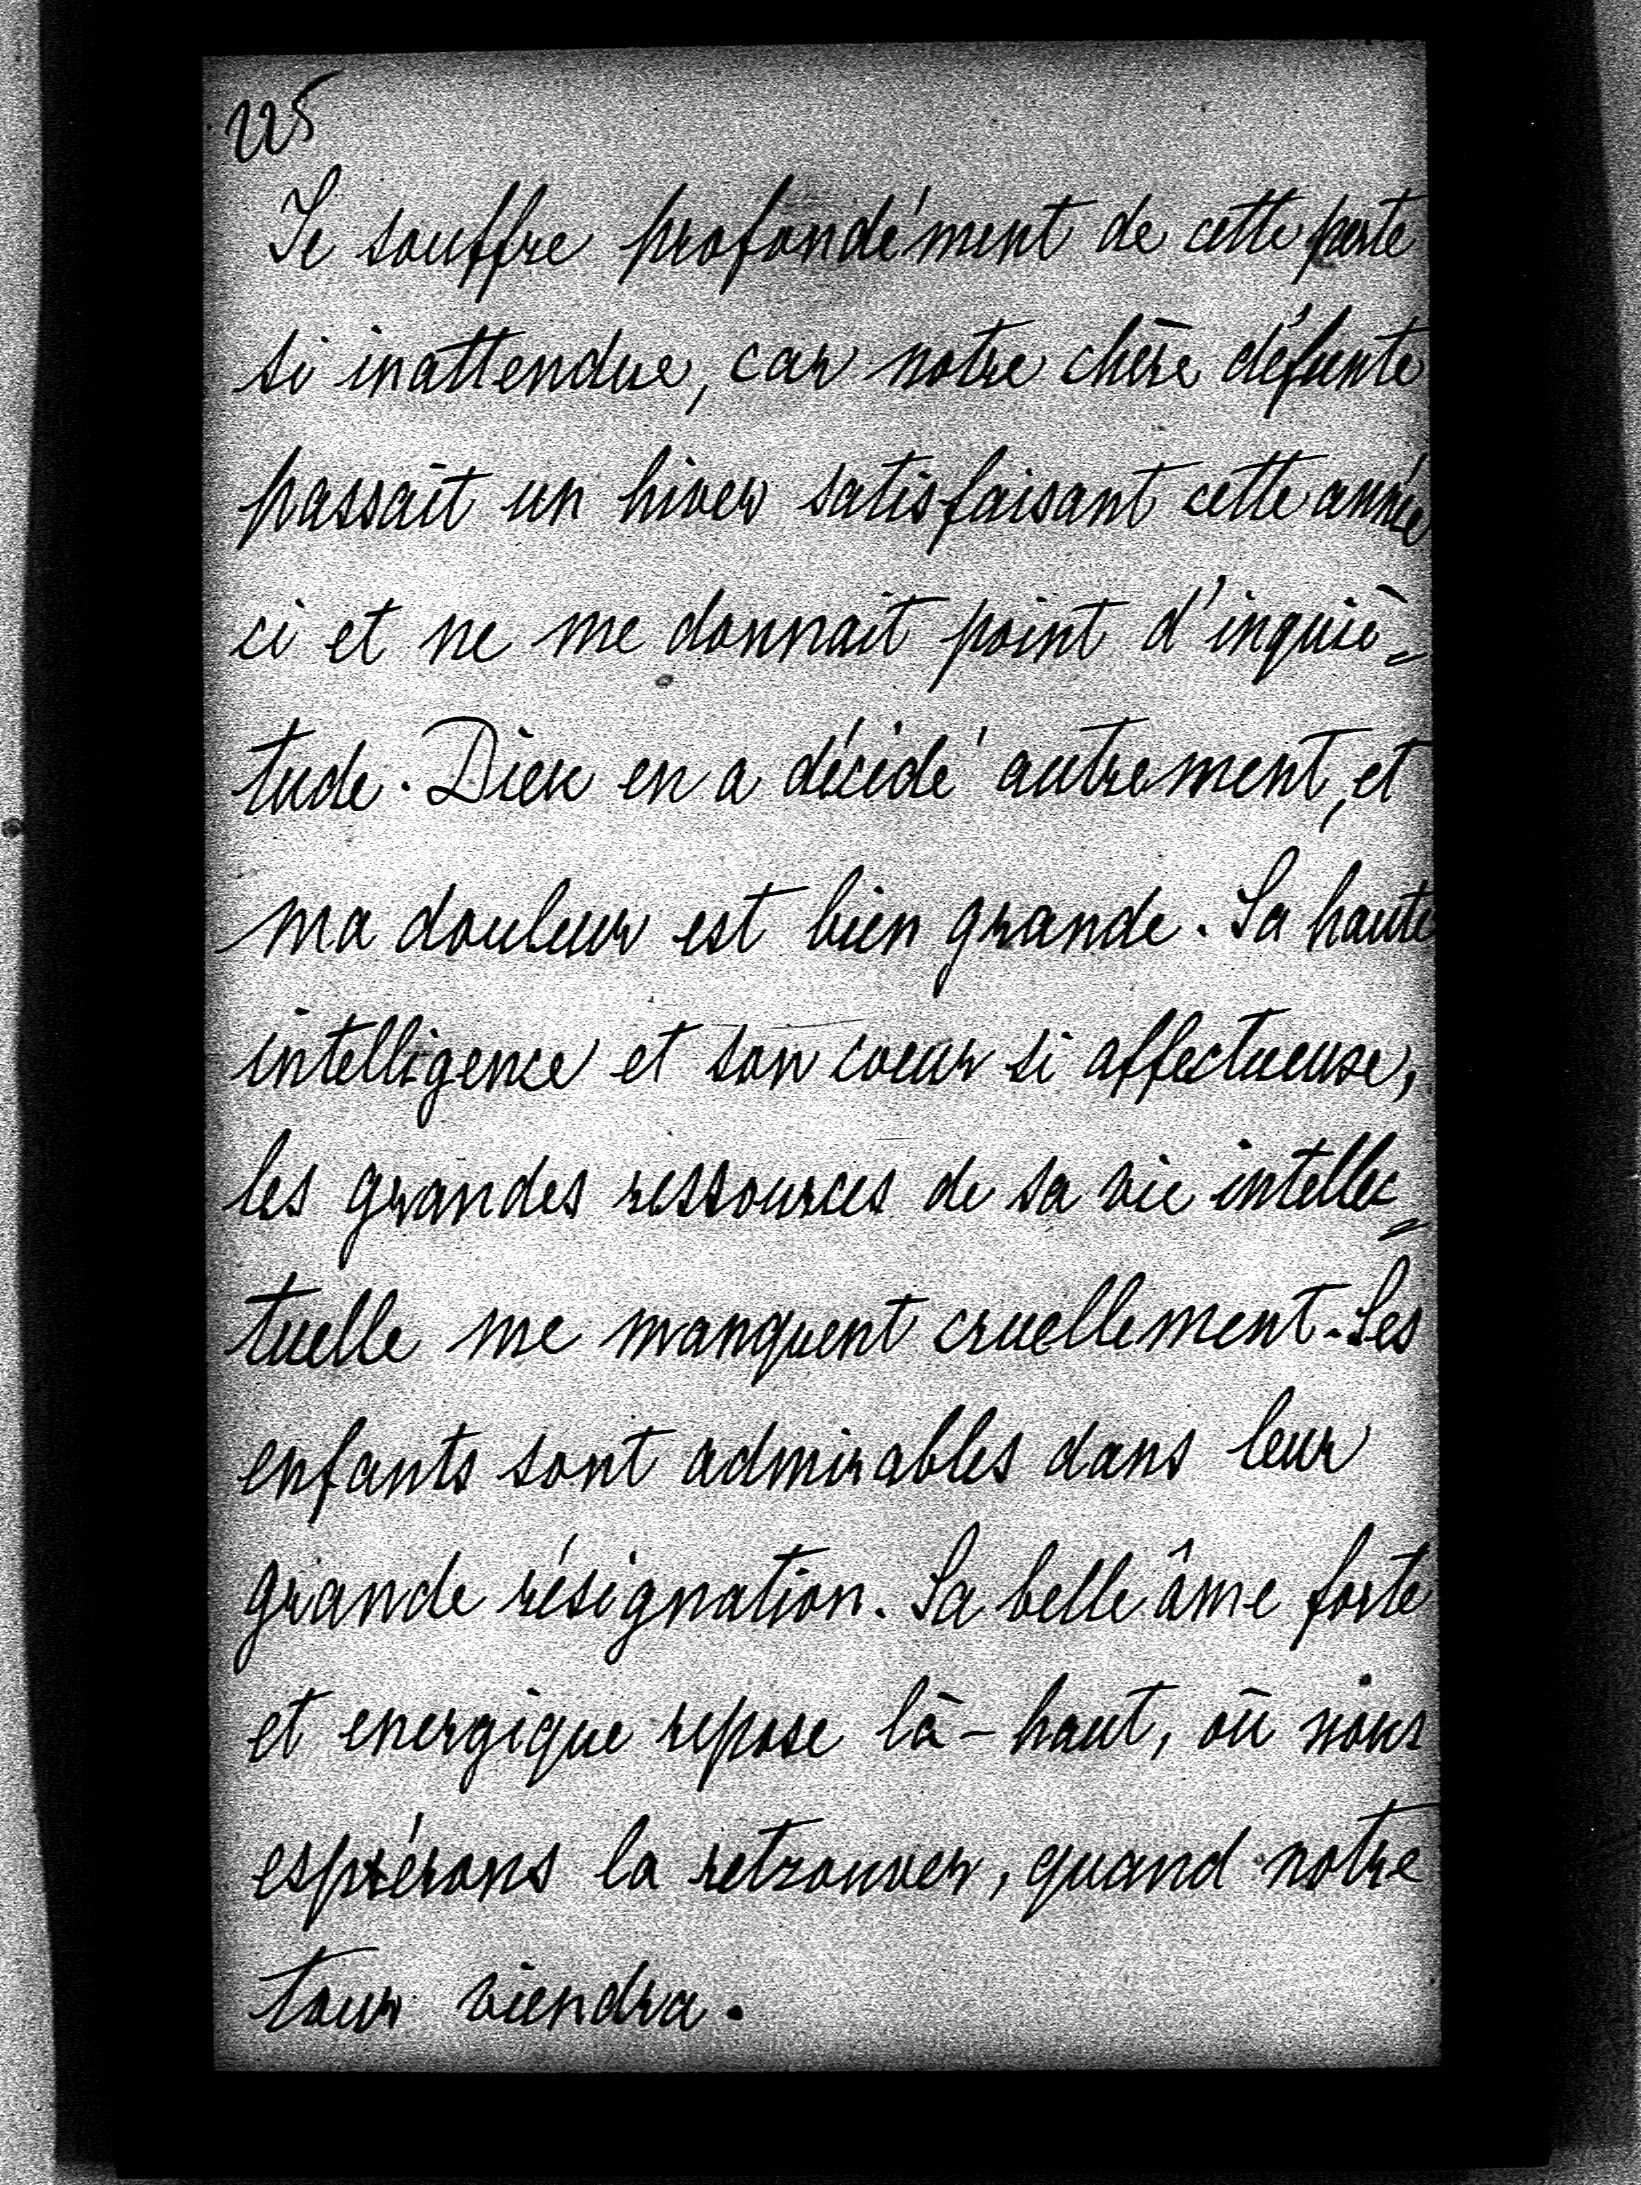 225
Je souffre profondément de cette perte
si inattendue, car notre chère défunte
passait un hiver satisfaisant cette année
ci et ne me donnait point d'inquiè=
tude. Dieu en a décidé autrement, et
ma douleur est bien grande. Sa haute
intelligence et son coeur si affectueuse,
les grandes ressources de sa vie intellec=
tuelle me manquent cruellement. Ses
enfants sont admirables dans leur
grande résignation. Sa belle âme forte
et energique repose là-haut, où nous
espérons la retrouver, quand notre
tour viendra.